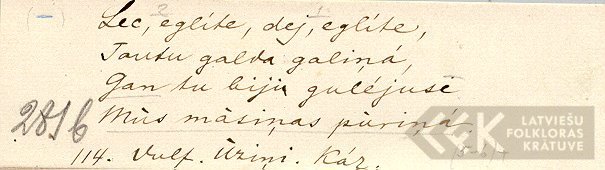 Lec, eglīte, dej, eglīte,
Tautu galda galiņā,
Gan tu biji gulējusē
2816 Mūs māsiņas pūriņā.
114. Vulf. Ūziņi. Káz.
LATVIEŠU
FOLKLORAS
KRĀTUVE